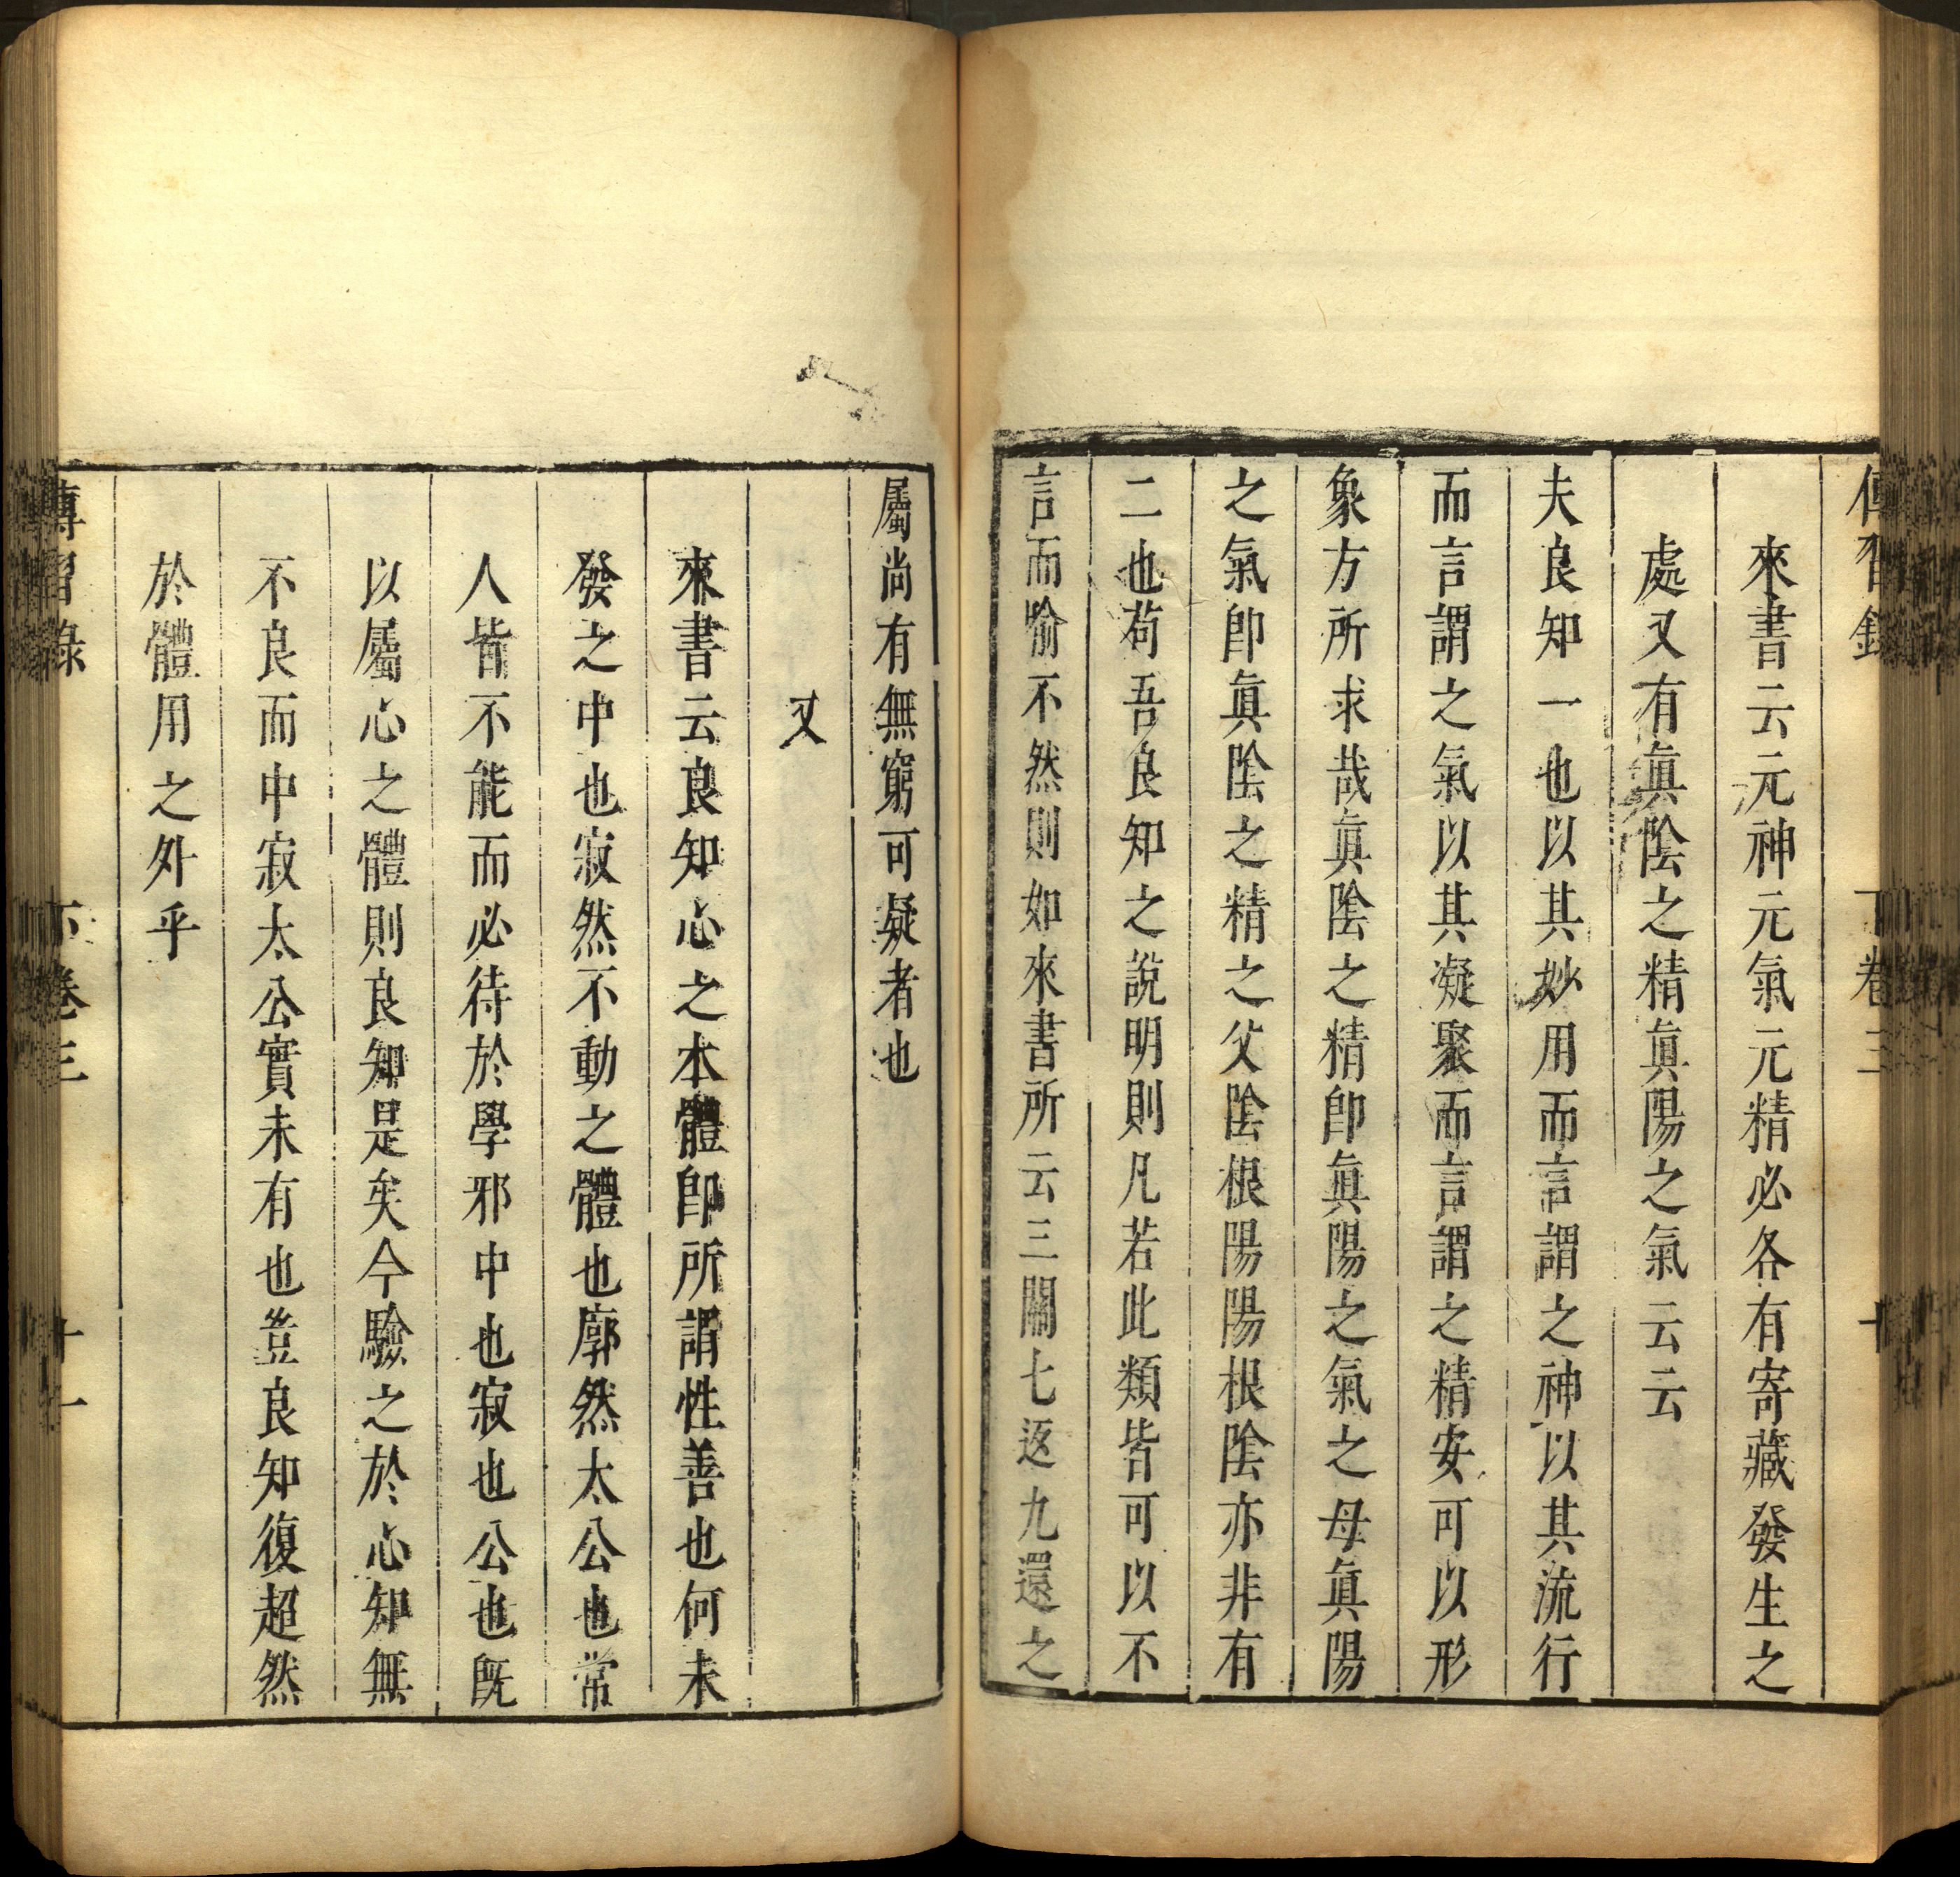 來書云元神元氣元精必各有寄藏發生之
處又有眞陰之精眞陽之氣云云
夫良知一也以其妙用而言謂之神以其流行
而言謂之氣以其凝聚而言謂之精安可以形
象方所求哉眞陰之精卽眞陽之氣之母眞陽
之氣卽眞陰之精之父陰根陽陽根陰亦非有
二也苟吾良知之說明則凡若此類皆可以不
言而喻不然則如來書所云三關七返九還之
屬尚有無窮可疑者也
又
來書云良知心之本體卽所謂性善也何未
發之中也寂然不動之體也廓然太公也常
人皆不能而必待於學邪中也寂也公也旣
以屬心之體則良知是矣今驗之於心知無
不良而中寂太公實未有也豈良知復超然
於體用之外乎
傳習錄 下卷三 十一